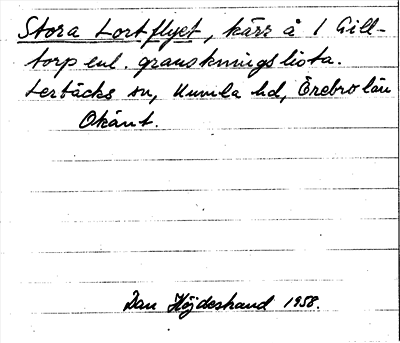 Stora Lortflyet, kärr å 1 Gill-
torp enl. granskningslista.
Lerbäcks sn, Kumla hd, Örebro län
Okänt.
Dan Höjdestrand 1958.